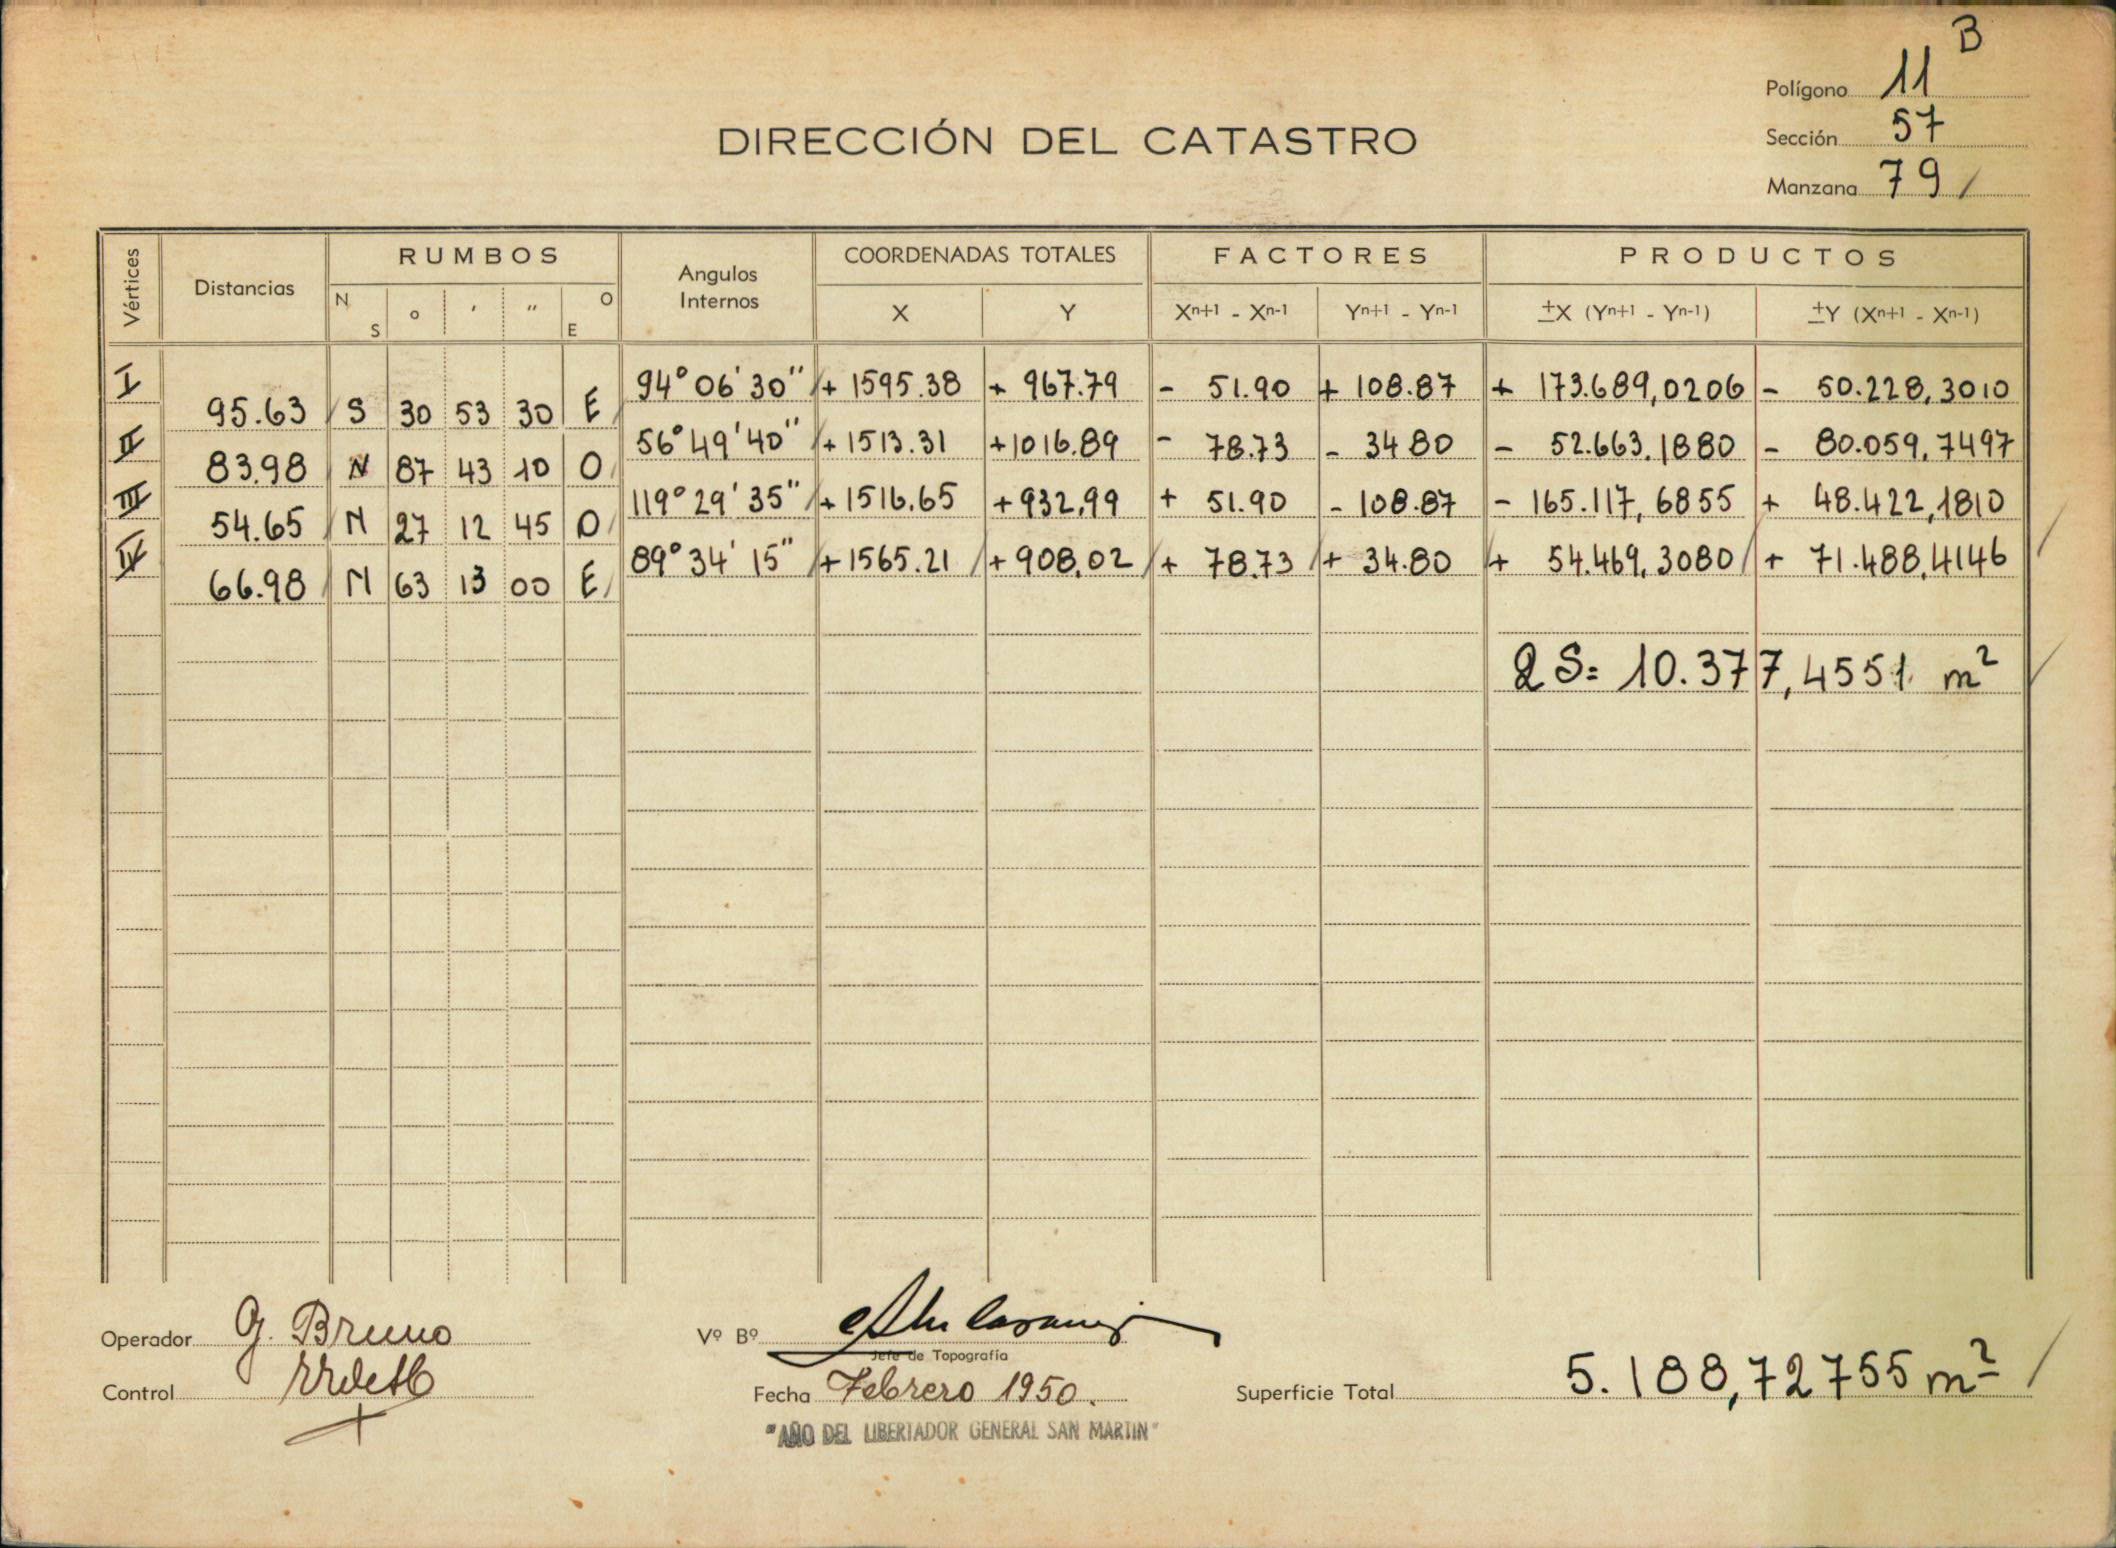 B
Polígono 11
DIRECCIÓN DEL CATASTRO
Sección 57
Manzana 79
Vértices Distancias RUMBOS Angulos Internos COORDENADAS TOTALES FACTORES PRODUCTOS
N S o ' " O E X Y Xn+1 - Xn-1 Yn+1 - Yn-1 ±X (Yn+1 - Yn-1) ±Y (Xn+1 - Xn-1)
I 94° 06' 30" + 1595.38 + 967.79 - 51.90 + 108.87 + 173.689,0206 - 50.228,3010
95.63 S 30 53 30 E
II 56° 49' 40" + 1513.31 +1016.89 - 78.73 - 34 80 - 52.663,1880 - 80.059,7497
83.98 N 87 43 10 O
III 119° 29' 35" + 1516.65 + 932,99 + 51.90 - 108.87 - 165.117,6855 + 48.422,1810
54.65 N 27 12 45 O
IV 89° 34' 15" + 1565.21 + 908.02 + 78.73 + 34.80 + 54.469,3080 + 71.488,4146
66.98 N 63 13 00 E
2 S= 10.377,4551 m²
Operador G. Bruno
Vº Bº
Jefe de Topografía
Control
Fecha Febrero 1950.
Superficie Total 5.188,72755 m²
"AÑO DEL LIBERTADOR GENERAL SAN MARTIN"